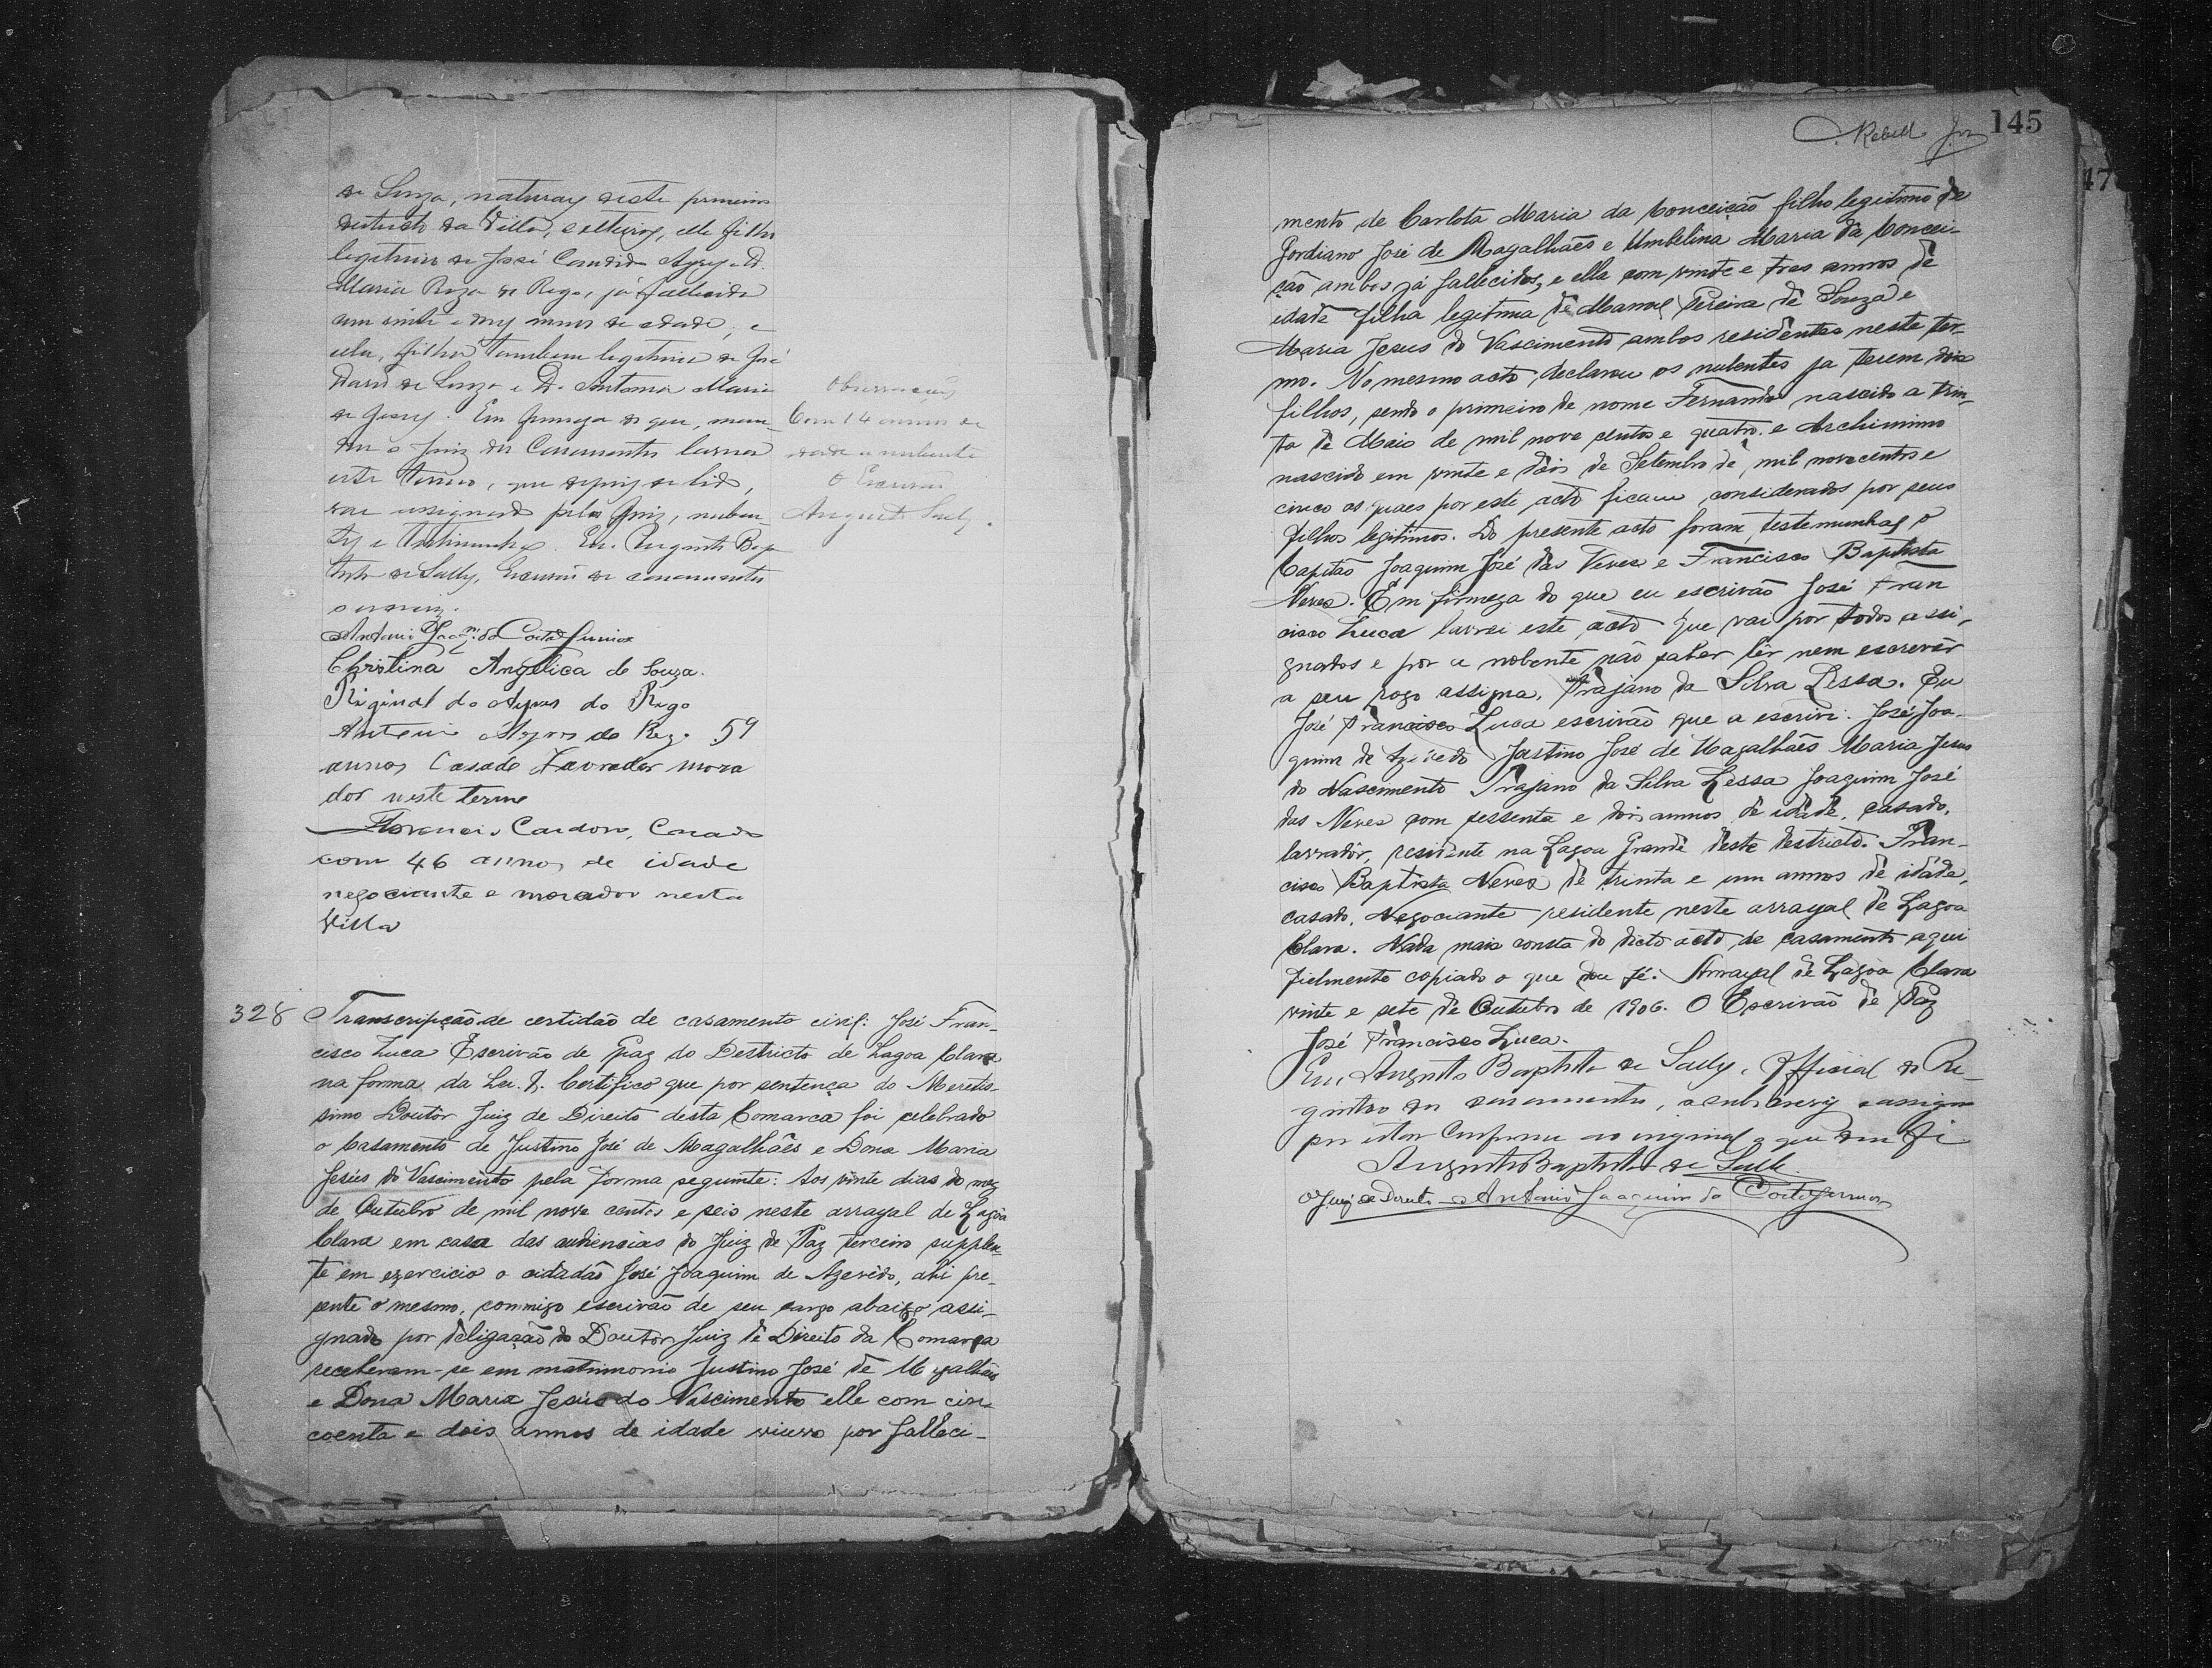 de Souza, naturaes deste primeiro
districto da Villa, solteiros, elle filho
legitimo de José Candido Ayres e D.
Maria Roza do Rego, já fallecida
com vinte e seis annos de edade, e
ella, filha tambem legitima de José
de Souza e D. Antonia Maria
de Jesus. Em firmeza do que, man-
dou o Juiz dos Casamentos lavrar
este termo, que depois de lido,
vae assignado pelo Juiz, nuben-
tes e testimunhas. Eu, Augusto Bap
tista de Sully, Escrivão de casamentos
o escrevi.
Antonio Joaqm. da Costa Junior
Christina Angelica de Souza.
Riginaldo Ayres do Rego
Antonio Ayres do Rego 59
annos Casado Lavrador mora
dor neste termo
Florencio Cardozo, Casado
com 46 annos de idade
negociante e morador nesta
Villa
Observação
Com 14 annos de
edade a nubente
O Escrivão
Augusto Sully.
328 Transcripção de certidão de casamento civil: José Fran-
cisco Luca Escrivão de Paz do Destricto de Lagoa Clara
na forma da Lei. &. Certifico que por sentença do Meretis-
simo Doutor Juiz de Direito desta Comarca foi celebrado
o Casamento de Justino José de Magalhães e Dona Maria
Jesús do Nascimento pela forma seguinte: Aos vinte dias do mez
de Outubro de mil nove centos e seis neste arrayal de Lagôa
Clara em casa das audiencias do Juiz de Paz terceiro supplen-
te em exercicio o cidadão José Joaquim de Azevêdo, ahi pre-
sente o mesmo, commigo escrivão de seu cargo abaixo assi-
gnado por deligação do Doutor Juiz de Direito da Comarca
receberam-se em matrimonio Justino José de Magalhães
e Dona Maria Jesús do Nascimento elle com cin
coenta e dois annos de idade viuvo por falleci-
145
mento de Carlota Maria da Conceição filho legitimo de
Gordiano José de Magalhães e Umbelina Maria da Concei-
ção ambos já fallecidos, e ella com vinte e tres annos de
idade filha legitima de Manoel Pereira de Souza e
Maria Jesus do Nascimento ambos residentes neste ter-
mo. No mesmo acto declarou os nubentes ja terem dois
filhos, sendo o primeiro de nome Fernando nascido a trin-
ta de Maio de mil nove centos e quatro. e Archimimo
nascido em vinte e dois de Setembro de mil nove centos e
cinco os quaes por este acto ficam considerados por seus
filhos legitimos. Do presente acto foram testemunhas o
Capitão Joaquim José das Neves e Francisco Baptista
Neves. Em firmeza do que eu escrivão José Fran
cisco Luca lavrei este acto que vai por todos assi-
gnados e por a nobente não saber lêr nem escrevêr
a seu rogo assigna, Trajano da Silva Lessa. Eu
José Francisco Luca escrivão que a escrivi. José Joa-
quim de Azevedo Justino José de Magalhães Maria Jesus
do Nascimento Trajano da Silva Lessa Joaquim José
das Neves com sessenta e dois annos de idade, casado,
lavradôr, residente na Lagoa Grande deste destricto. Fran-
cisco Baptista Neves de trinta e um annos de idade,
casado, Negociante residente neste arrayal de Lagoa
Clara. Nada mais consta do dicto acto de casamento aqui
fielmente copiado o que dou fé. Arrayal de Lagôa Clara
vinte e sete de Outubro de 1906. O Escrivão de Paz
José Francisco Luca.
Eu, Augusto Baptista de Sully, Official do Re-
gistro de casamentos, o subscrevi e assigno
por estar conforme ao original o que dou fé
Augusto Baptista de Sully.
O Juiz de Direito Antonio Joaquim da Costa Junior